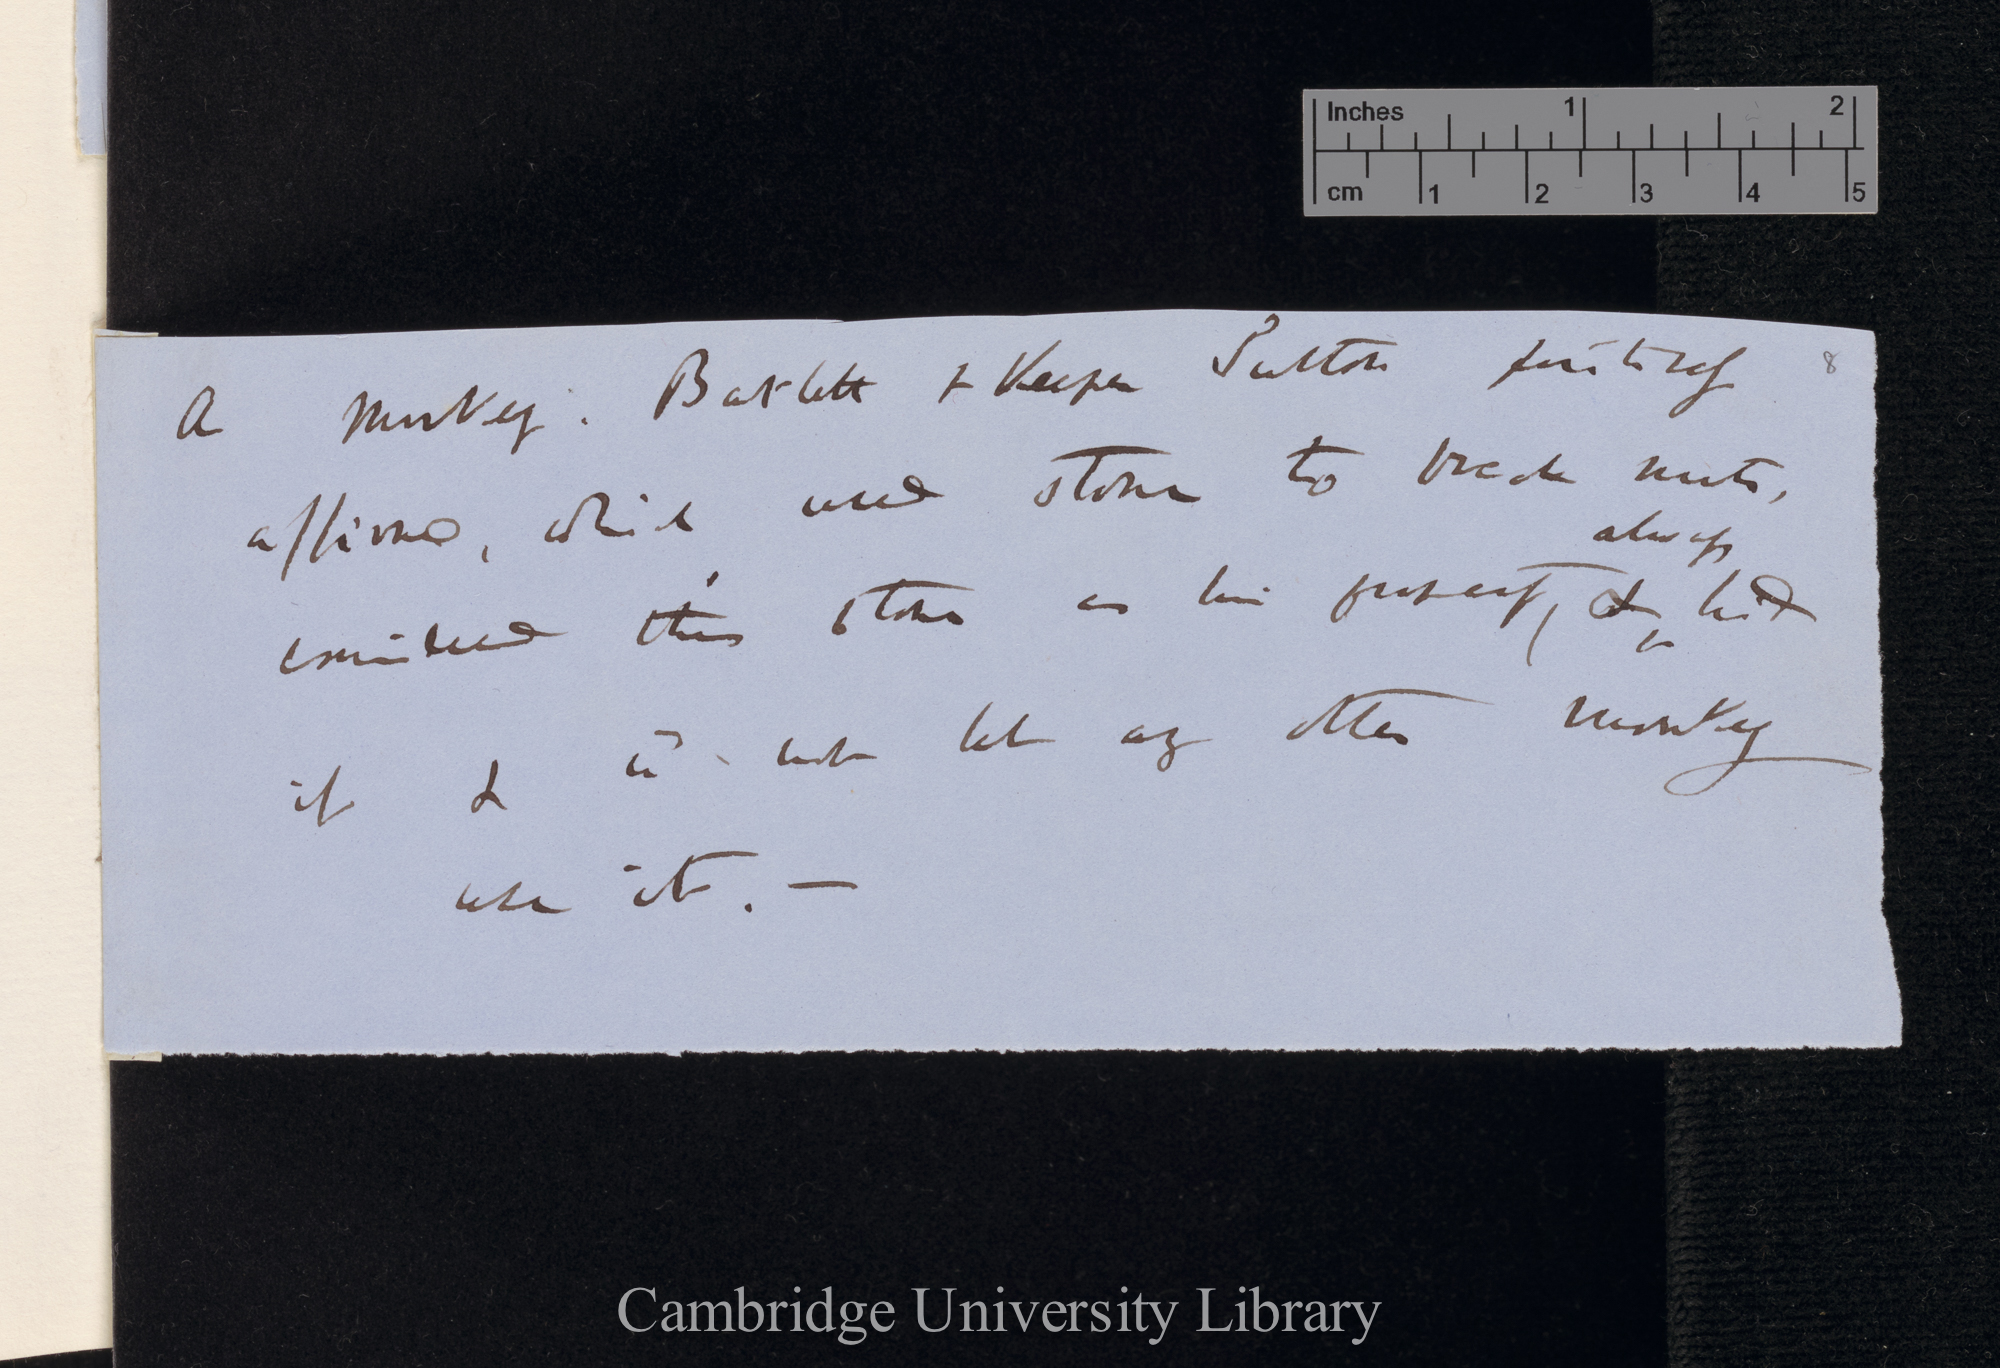 Inches 1 2
cm 1 2 3 4 5
8
A Monkey. Bartlett & Keeper Sutton positively
affirmed, which used stone to break nuts,
always
considered this stone as his property, & hid
it & wd. not let any other monkey
use it. —
Cambridge University Library